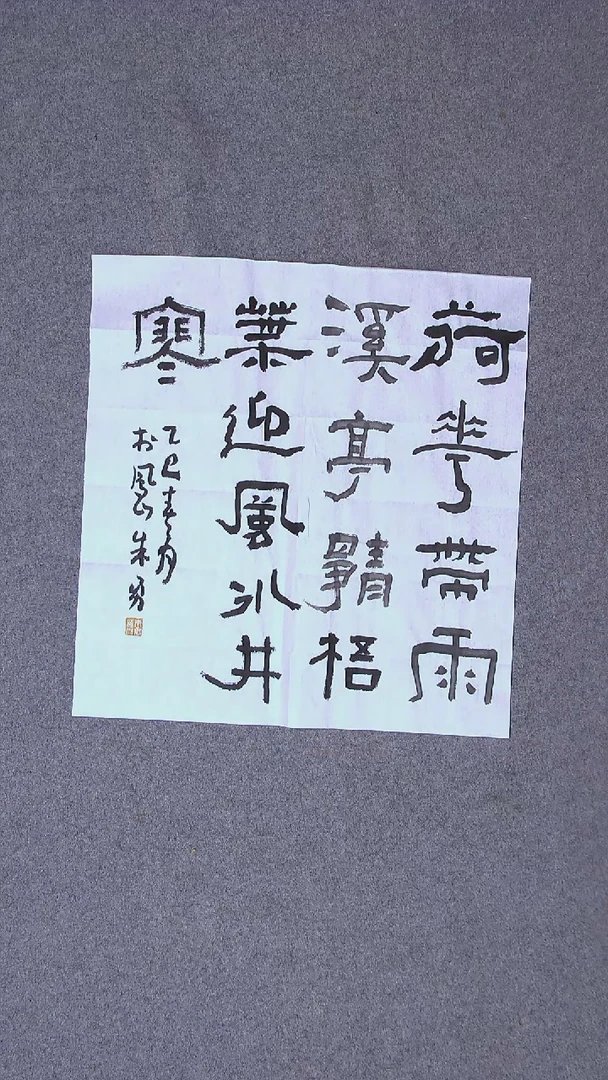 荷華帶雨
溪亭靜梧
葉迎風水井
寒
乙巳春月
於凤山朱勇